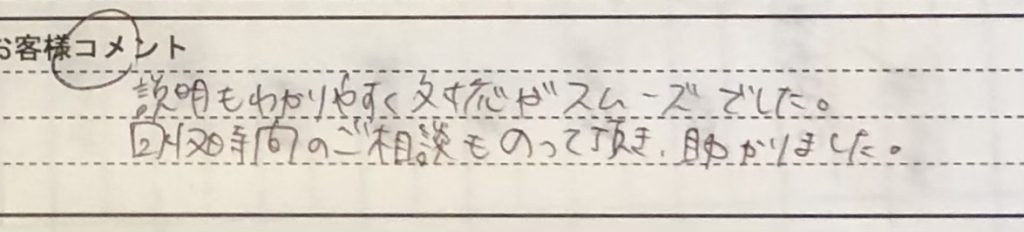 お客様コメント
説明もわかりやすく対応がスムーズでした。
回収時間のご相談ものって頂き、助かりました。